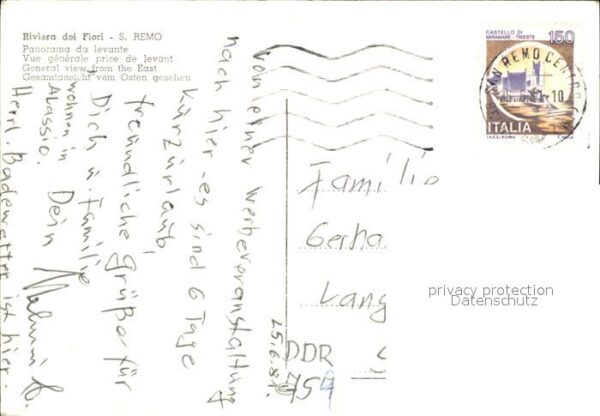 Riviera dei Fiori - S. REMO
Panorama da levante
Vue générale prise de levant
General view from the East
Gesamtansicht vom Osten gesehen
CASTELLO DI
MIRAMARE - TRIESTE
150
ITALIA
SAN REMO CENTRO
10
von einer Werbeveranstaltung
nach hier - es sind 6 Tage
Kurzurlaub,
freundliche Grüße für
Dich u. Familie
Dein
wohnen in
Alassio.
Herrl. Badewetter ist hier.
25.6.87.
Familie
Gerha
Lang
DDR
privacy protection
Datenschutz